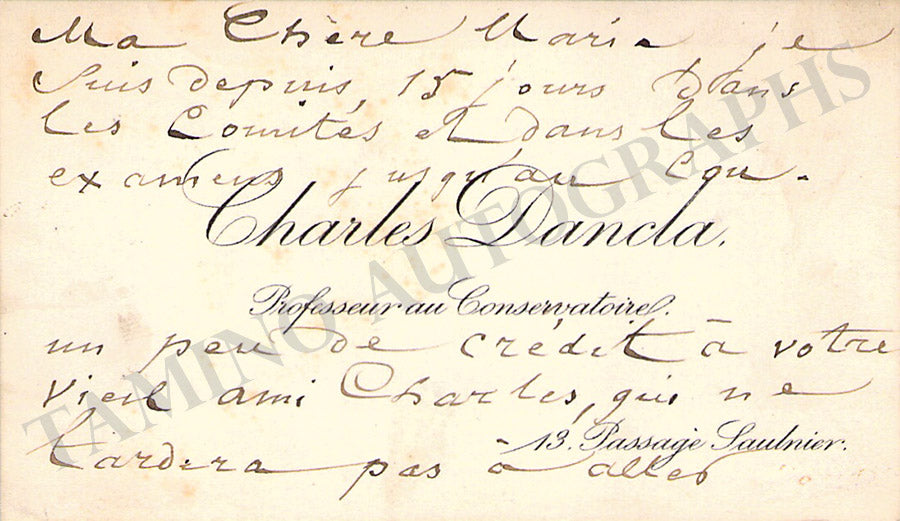 Ma Chère Marie je
suis depuis, 15 jours Dans
les Comités et dans les
examens jusqu'au Cou.
Charles Dancla.
Professeur au Conservatoire.
un peu de crédit à votre
vieil ami Charles, qui ne
13. Passage Saulnier.
tardera pas à aller
TAMINO AUTOGRAPHS